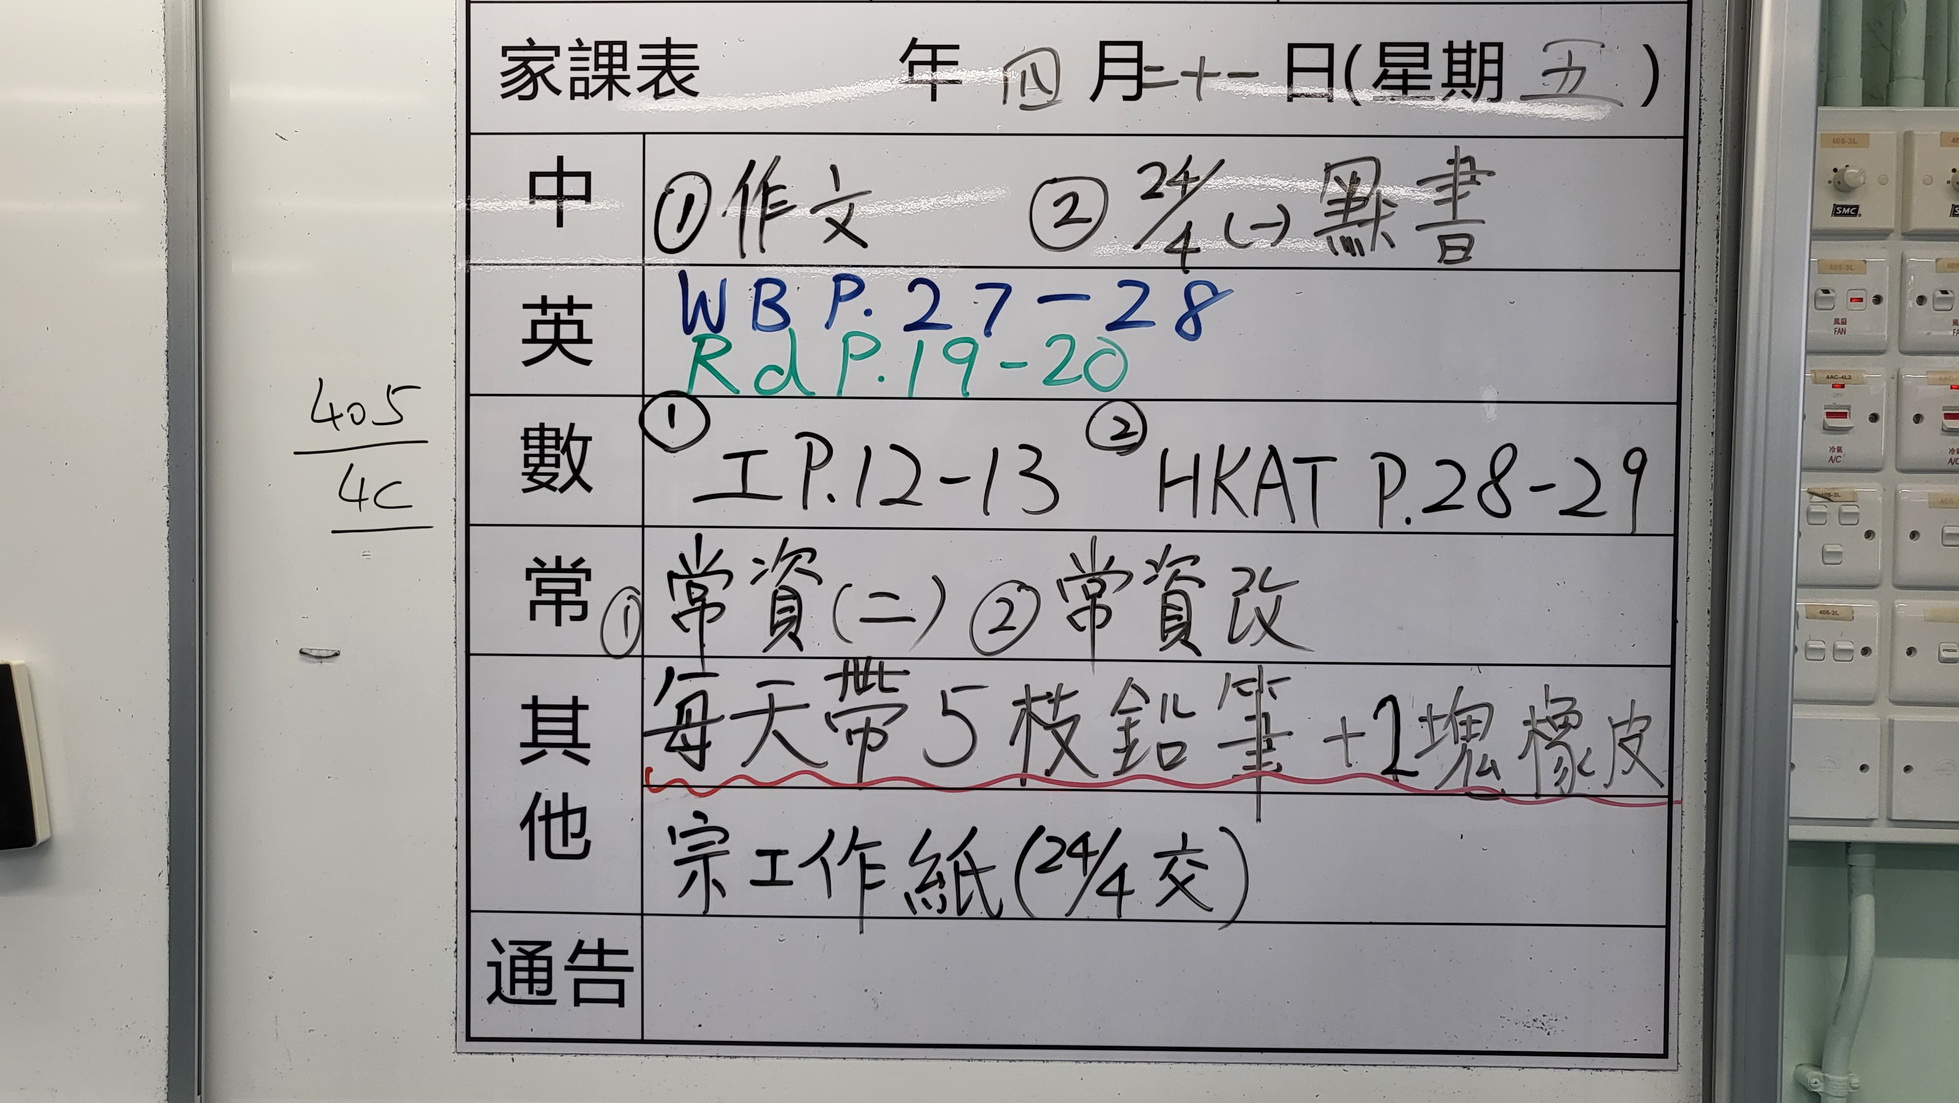 家課表 年 四 月 二十一 日(星期 五)
中 ①作文 ② 24/4 (一) 默書
英 WB P.27-28
Rd P.19-20
數 ① 工 P.12-13 ② HKAT P.28-29
常 ① 常資(二) ② 常資改
其他 每天帶5枝鉛筆+2塊橡皮
宗工作紙(24/4交)
通告
405
4C
SMC
風扇
FAN
冷氣
A/C